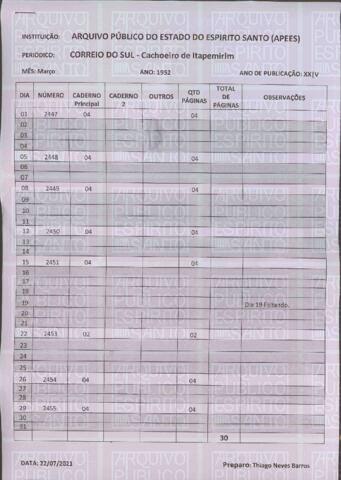 INSTITUIÇÃO: ARQUIVO PÚBLICO DO ESTADO DO ESPIRITO SANTO (APEES)
PERIODICO: CORREIO DO SUL - Cachoeiro de Itapemirim
MÊS: Março ANO: 1952 ANO DE PUBLICAÇÃO: XXIV
DIA NÚMERO CADERNO Principal CADERNO 2 OUTROS QTD PÁGINAS TOTAL DE PÁGINAS OBSERVAÇÕES
01 2447 04 04
02
03
04
05 2448 04 04
06
07
08 2449 04 04
09
10
11
12 2450 04 04
13
14
15 2451 04 04
16
17
18
19 Dia 19 Feriado.
20
21
22 2453 02 02
23
24
25
26 2454 04 04
27
28
29 2455 04 04
30
31
30
DATA: 22/07/2021 Preparo: Thiago Neves Barros